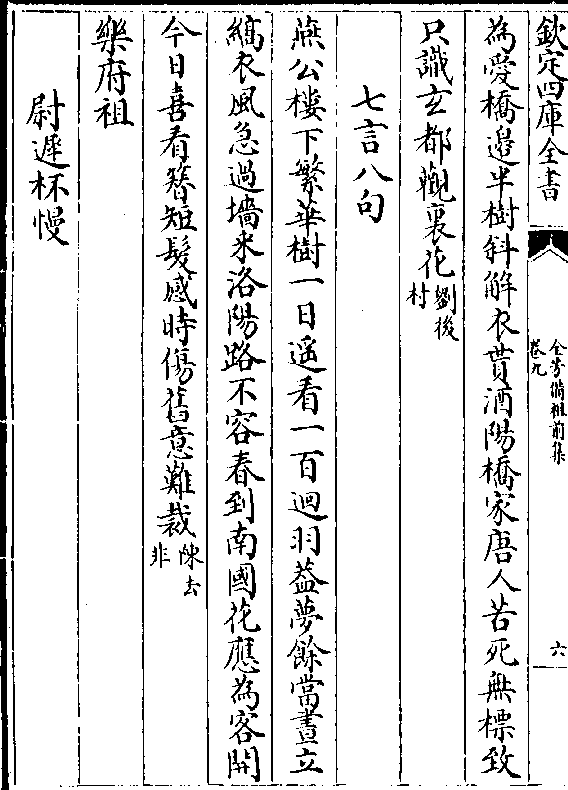 欽定四庫全書
全芳備祖前集
卷九
六
為愛橋邉半樹斜解衣貰酒隔橋家唐人苦死無標致
只識玄都觀裏花劉後村
七言八句
燕公樓下繁華樹一日遥看一百迴羽葢夢餘當晝立
縞衣風急過墻來洛陽路不容春到南國花應為客開
今日喜看簪短髪感時傷舊意難裁陳去非
樂府祖
尉遲杯慢